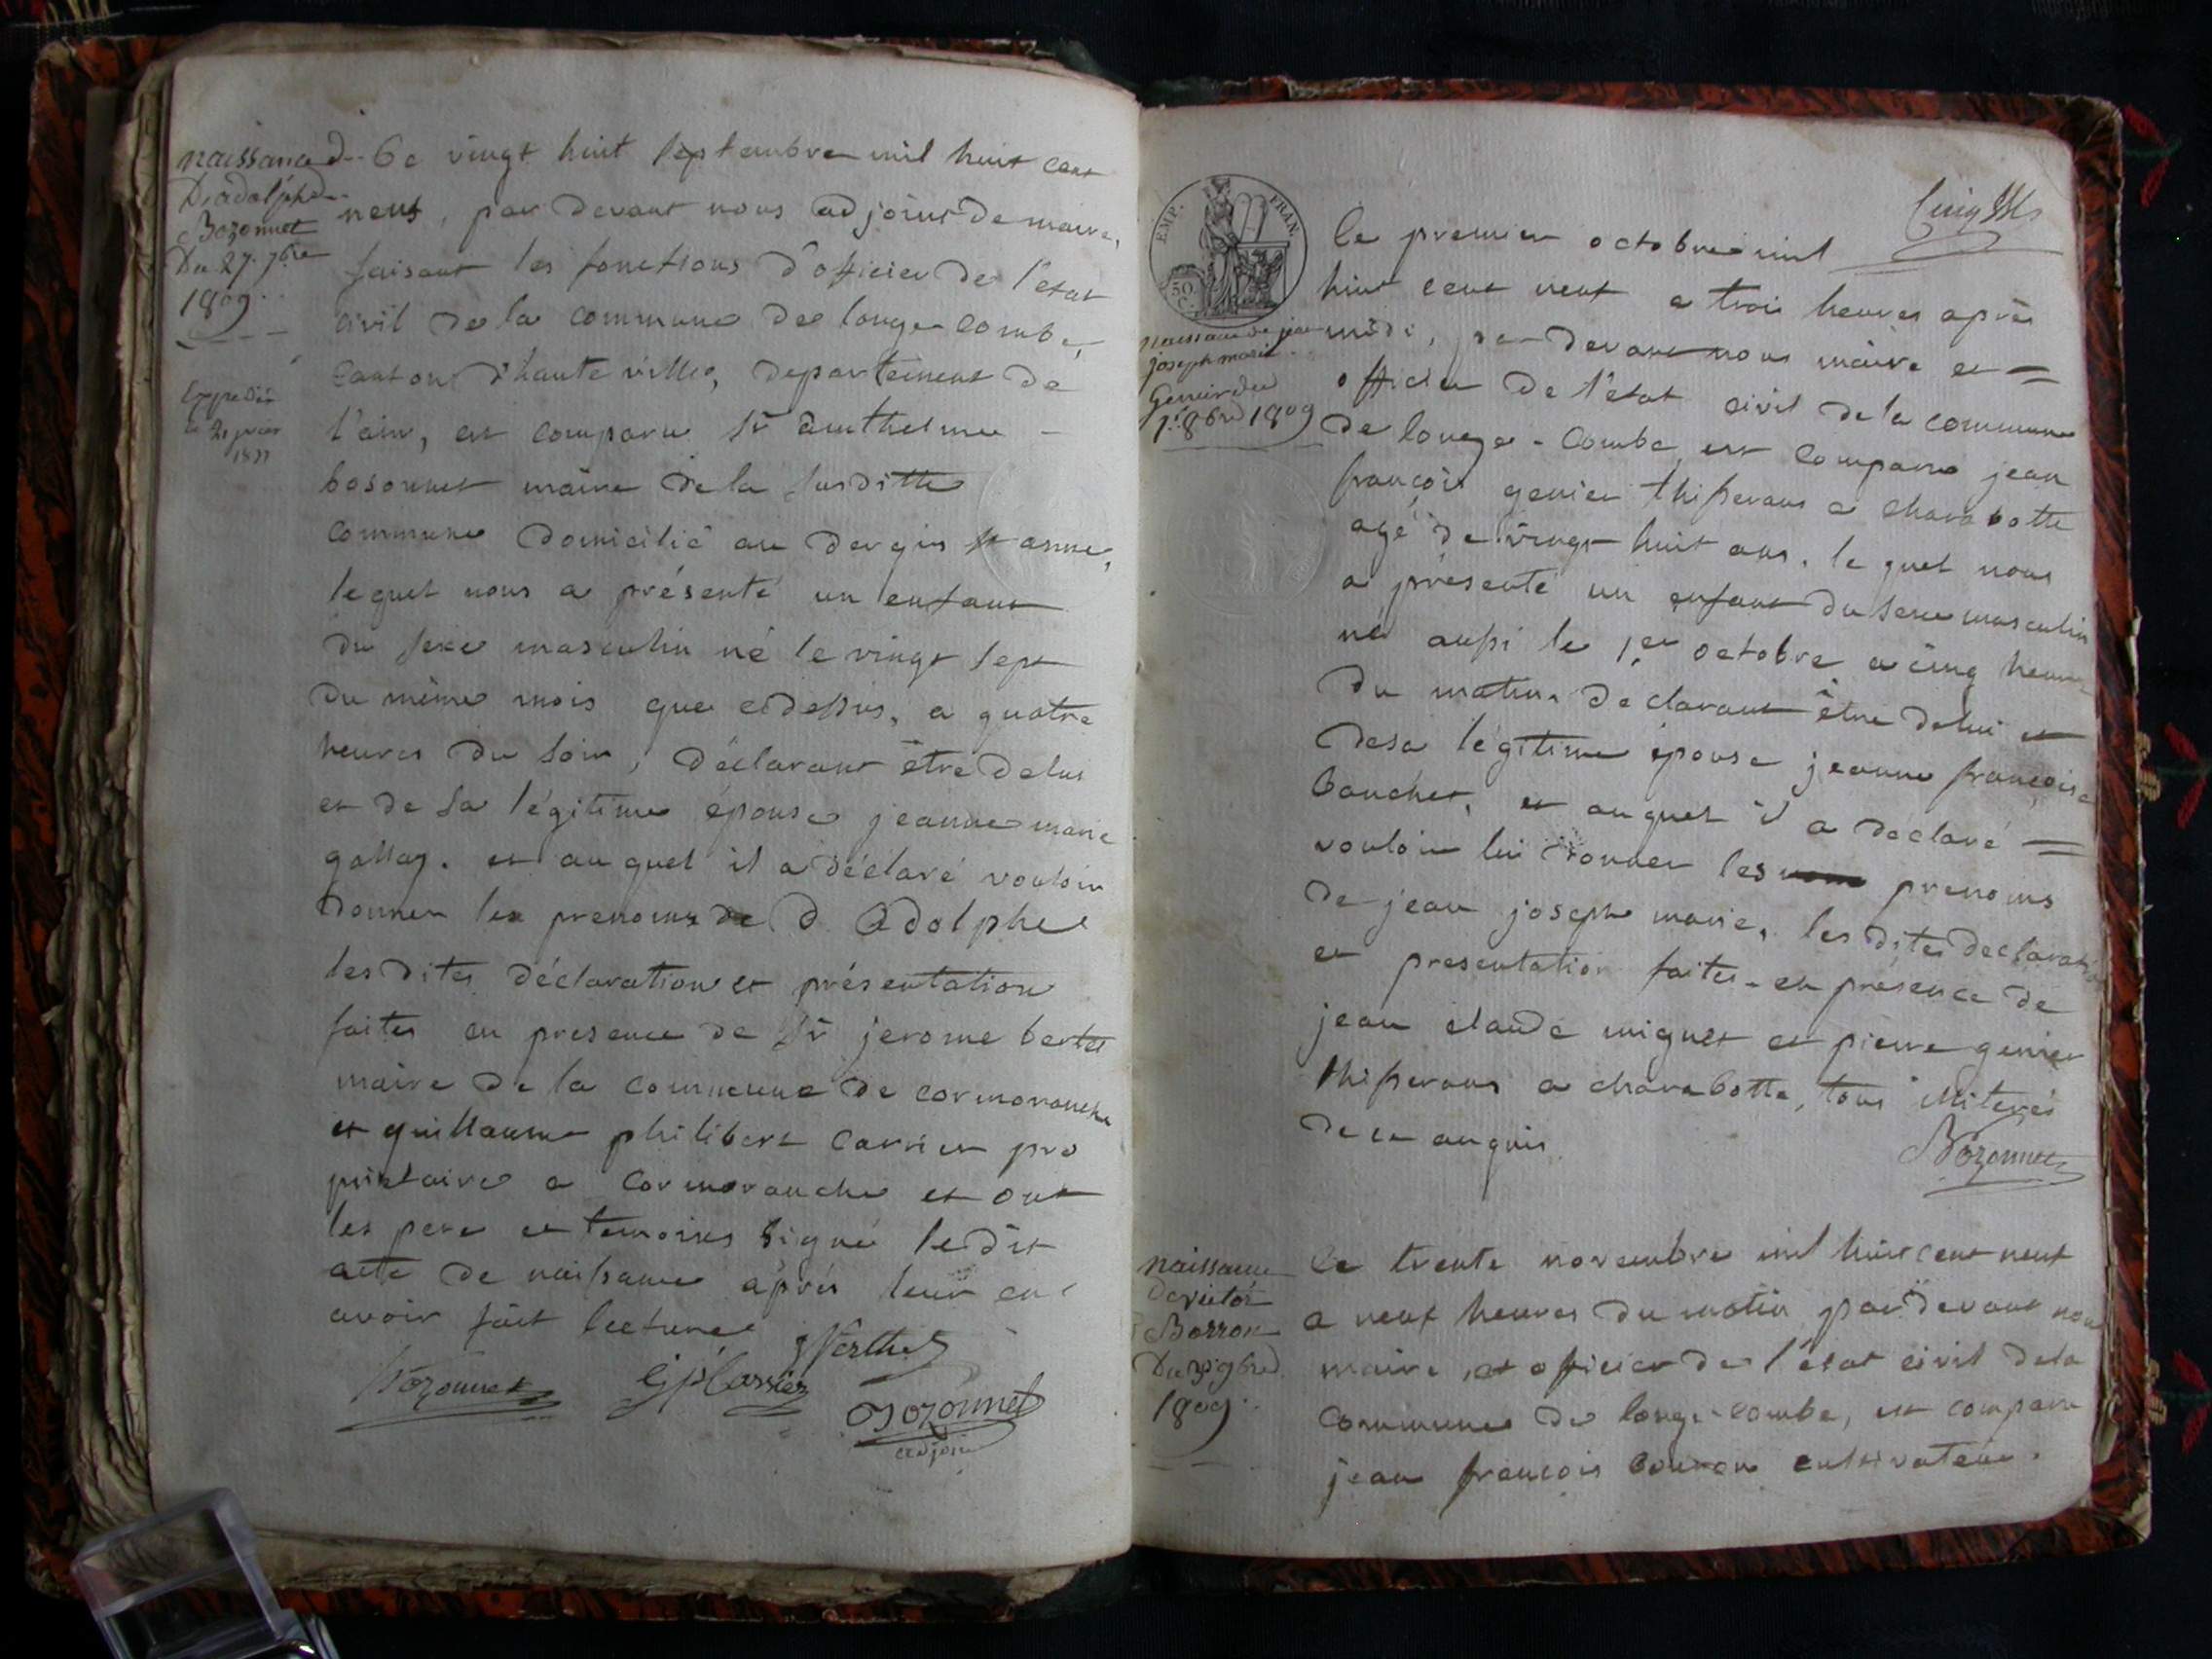 naissance
D'adolphe
Bozonnet
Du 27. 7bre
1809.
Expedié
le vingt huit septembre mil huit cent
neuf, par devant nous adjoint de maire,
faisant les fonctions d'officier de l'etat
civil de la commune de longe-combe,
canton d'hauteville, departement de
l'ain, est comparu sr anthelme
bosonnet maire de la susditte
commune domicilié au dergis st anne,
lequel nous a présenté un enfant
du sexe masculin né le vingt sept
du même mois que cidessus, a quatre
heures du soir, déclarant être de lui
et de sa légitime épouse jeanne marie
gallay. et au quel il a déclaré vouloir
donner les prenoms de D. Adolphe
les dites déclaration et présentation
faites en presence de Sr jerome bertet
maire de la commune de cormoranche
et guillaume philibert carrier pro
prietaire a cormoranche et ont
les pere et temoins signé le dit
acte de naissance après leur en
avoir fait lecture
Bozonnet G P Carrier Berthet
Bozonnet
adjoint
EMP. FRAN.
50 C.
Cinq
naissance de jean
joseph marie
Genier du
1er 8bre 1809
le premier octobre mil
huit cent neuf a trois heures après
midi, par devant nous maire et =
officier de l'état civil de la commune
de longe-combe est comparu jean
françois genier thisserant a charabotte
agé de vingt huit ans, le quel nous
a présenté un enfant du sexe masculin
né aussi le 1er octobre a cinq heures
du matin declarant être de lui et
de sa légitime épouse jeanne françoise
bouchet, et au quel il a déclaré =
vouloir lui donner les prenoms
de jean joseph marie, les dites declaration
et presentation faites en présence de
jean claude miguet et pierre genier
thisserans a charabotte, tous illiterés
de ce anquis
Bozonnet
naissance
de victor
Borron
Du 9bre
1809.
le trente novembre mil huit cent neuf
a neuf heures du matin par devant nous
maire et officier de l'état civil de la
commune de longe-combe, est comparu
jean françois bourron cultivateur.